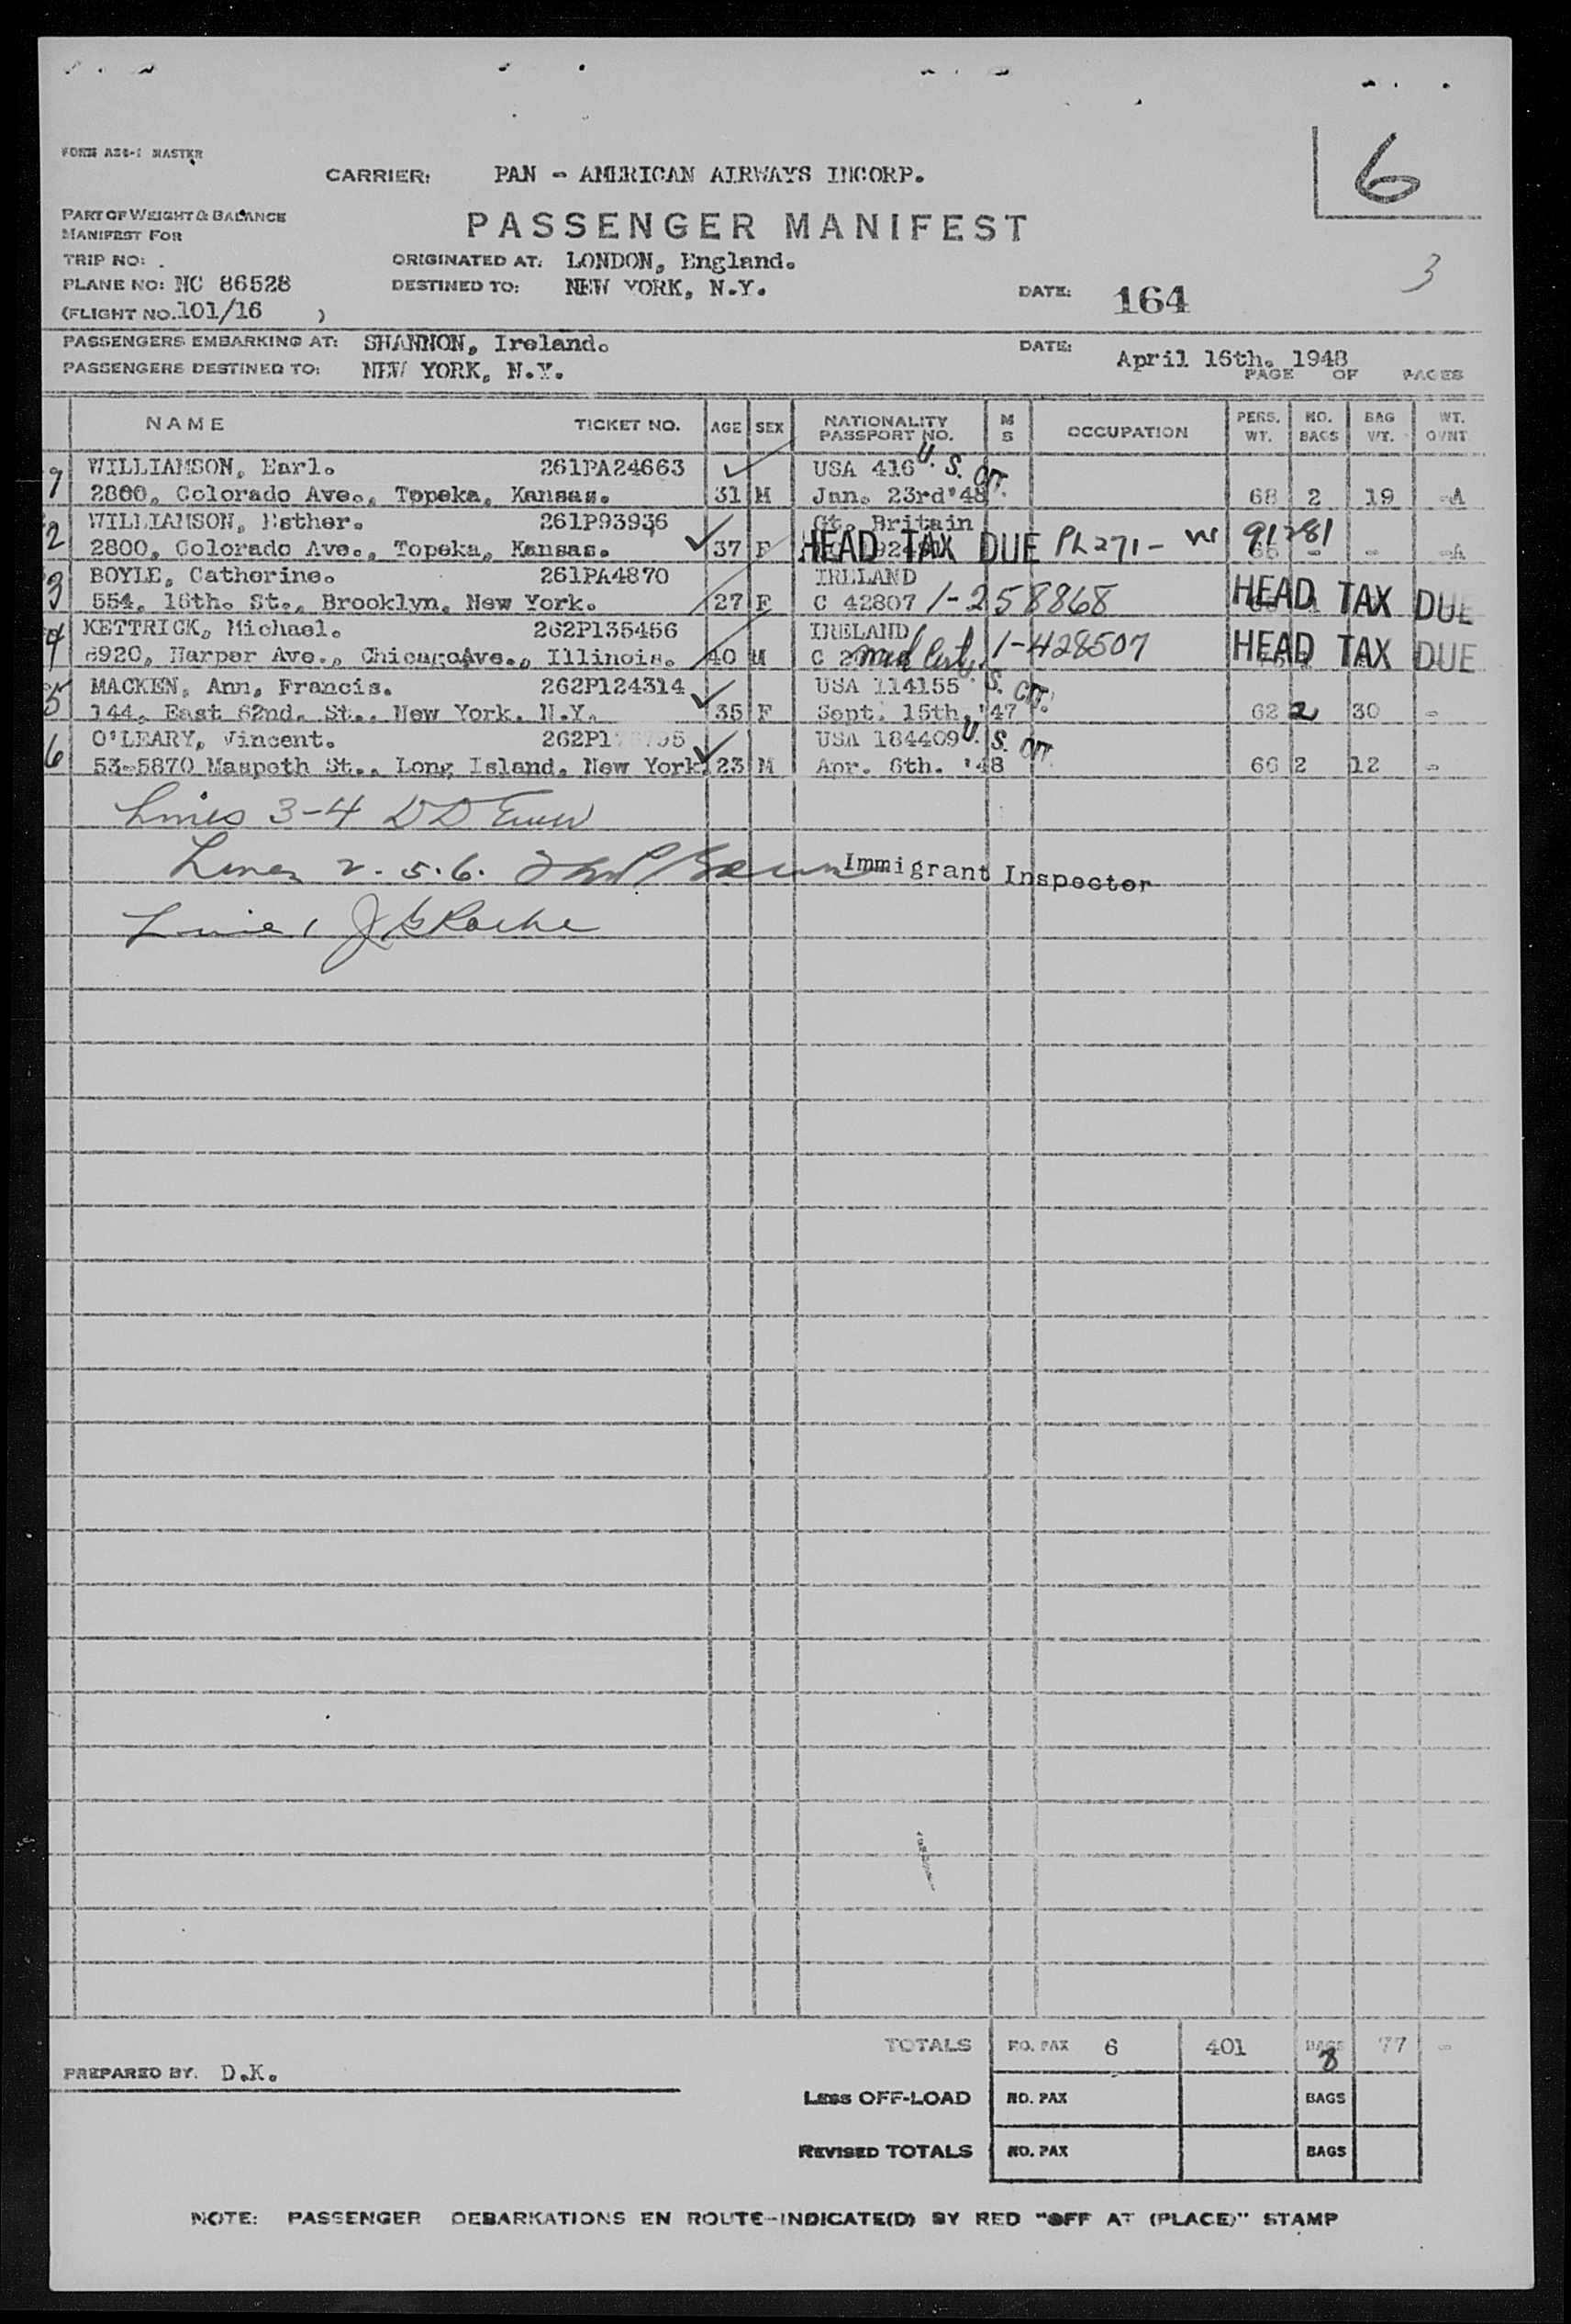 6
FORM A24-1 MASTER
CARRIER: PAN - AMERICAN AIRWAYS INCORP.
PART OF WEIGHT & BALANCE
MANIFEST FOR
PASSENGER MANIFEST
TRIP NO: .
ORIGINATED AT: LONDON, England.
3
PLANE NO: NC 86528
DESTINED TO: NEW YORK, N.Y.
DATE: 164
(FLIGHT NO. 101/16 )
PASSENGERS EMBARKING AT: SHANNON, Ireland.
DATE: April 16th. 1948
PASSENGERS DESTINED TO: NEW YORK, N.Y.
PAGE OF PAGES
NAME TICKET NO. AGE SEX NATIONALITY PASSPORT NO. M S OCCUPATION PERS. WT. NO. BAGS BAG WT. WT. OVNT
1 WILLIAMSON, Earl. 261PA24663 USA 416 U.S. CIT.
2800, Colorado Ave., Topeka, Kansas. 31 M Jan. 23rd '48 68 2 19 -A
2 WILLIAMSON, Esther. 261P93936 Gt. Britain
2800, Colorado Ave., Topeka, Kansas. 37 F HEAD TAX DUE PL271- 91281 - - -A
3 BOYLE, Catherine. 261PA4870 IRELAND
554, 16th. St., Brooklyn, New York. 27 F C 42807 1-258868 HEAD TAX DUE
4 KETTRICK, Michael. 262P135456 IRELAND
6920, Harper Ave., ChicagoAve., Illinois. 40 M C med Cert. 1-428507 HEAD TAX DUE
5 MACKEN, Ann, Francis. 262P124314 USA 114155 S. CIT.
144, East 62nd. St., New York. N.Y. 35 F Sept. 15th, '47 62 2 30 -
6 O'LEARY, Vincent. USA 184409 U.S. CIT.
53-5870 Maspeth St., Long Island. New York. 23 M Apr. 6th. '48 66 2 12 -
Lines 3-4 DD
Lines 2. 5. 6.
Immigrant Inspector
Line 1 J G Roche
TOTALS NO. PAX 6 401 BAGS 8 77 -
PREPARED BY. D.K.
Less OFF-LOAD NO. PAX BAGS
REVISED TOTALS NO. PAX BAGS
NOTE: PASSENGER DEBARKATIONS EN ROUTE-INDICATE(D) BY RED "OFF AT (PLACE)" STAMP